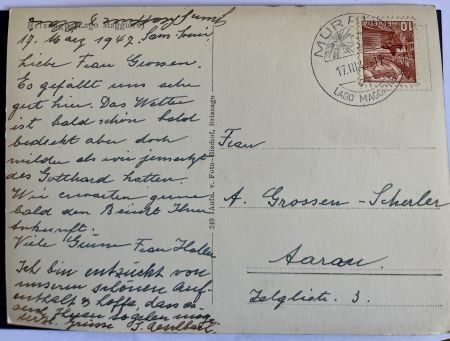 Brissago (Lago Maggiore)
17. März 1947. Sans Souci.
Liebe Frau Grossen.
Es gefällt uns sehr
gut hier. Das Wetter
ist bald schön bald
bedeckt aber doch
milder als wir jenseits
des Gotthard hatten.
Wir erwarten gerne
bald den Bericht Ihrer
Ankunft.
Viele Grüsse Frau
Ich bin entzückt von
unserem schönen Auf-
enthalt & hoffe, dass es
auch Ihnen so gehen möge
Grüsse
249 Aufn. v. Foto-Bierhof, Brissago
17.III
LAGO MAGGIORE
10
HELVETIA
Frau
A. Grossen-Scherler
Aarau.
Zelglistr. 3.